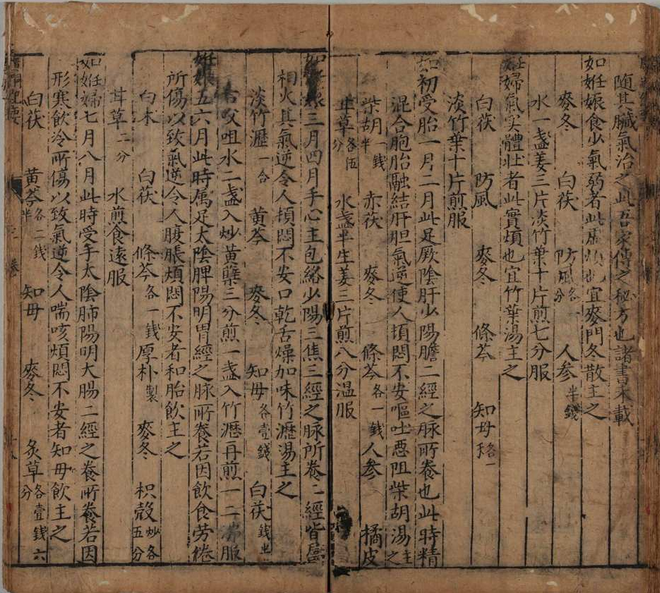 随其臟氣治之此吾家傳之秘方也諸書未載
如妊娠食少氣弱者此虛煩也宜麥門冬散主之
麥冬 白茯 防風各一 人參半錢
水一盞姜三片淡竹葉十片煎七分服
妊婦氣實體壯者此實煩也宜竹葉湯主之
白茯 防風 麥冬 條芩 知母各一
淡竹葉十片煎服
如初受胎一月二月此足厥陰肝少陽膽二經之脉所養也此時精
混合胞胎融結肝胆氣逆使人煩悶不安嘔吐惡阻柴胡湯主之
柴胡半錢 赤茯 麥冬 條芩各一錢 人參 橘皮
甘草各五分 水盞半生姜三片煎八分溫服
三月四月手心主包絡少陽三焦三經之脉所養二經皆屬
相火其氣逆令人煩悶不安口乾舌燥加味竹瀝湯主之
淡竹瀝一合 黃芩 麥冬 知母各壹錢 白茯
右㕮咀水二盞入炒黃蘗三分煎一盞入竹瀝再煎一二沸服
妊娠五六月此時属足太陰脾陽明胃經之脉所養若因飲食劳倦
所傷以致氣逆令人腹脹煩悶不安者和胎飲主之
白术 白茯 條芩各一錢 厚朴製 麥冬 枳殻炒各五分
甘草二分 水煎食遠服
如妊婦七月八月此時受手太陰肺陽明大腸二經之養所養若因
形寒飲冷所傷以致氣逆令人喘咳煩悶不安者知母飲主之
白茯 黃芩各二錢半 知母 麥冬 炙草各壹錢六分